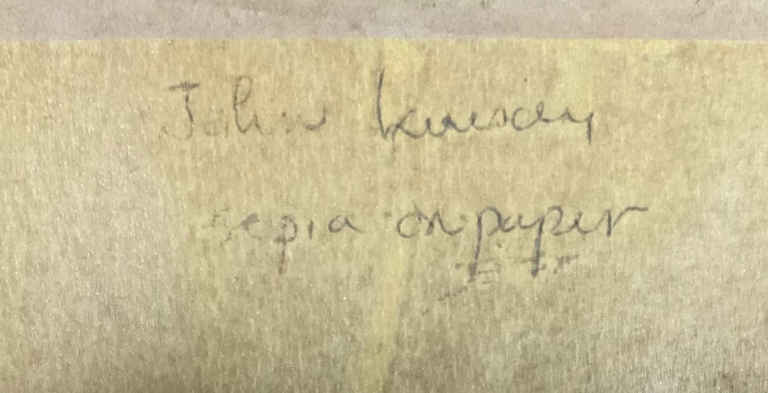 John
sepia on paper